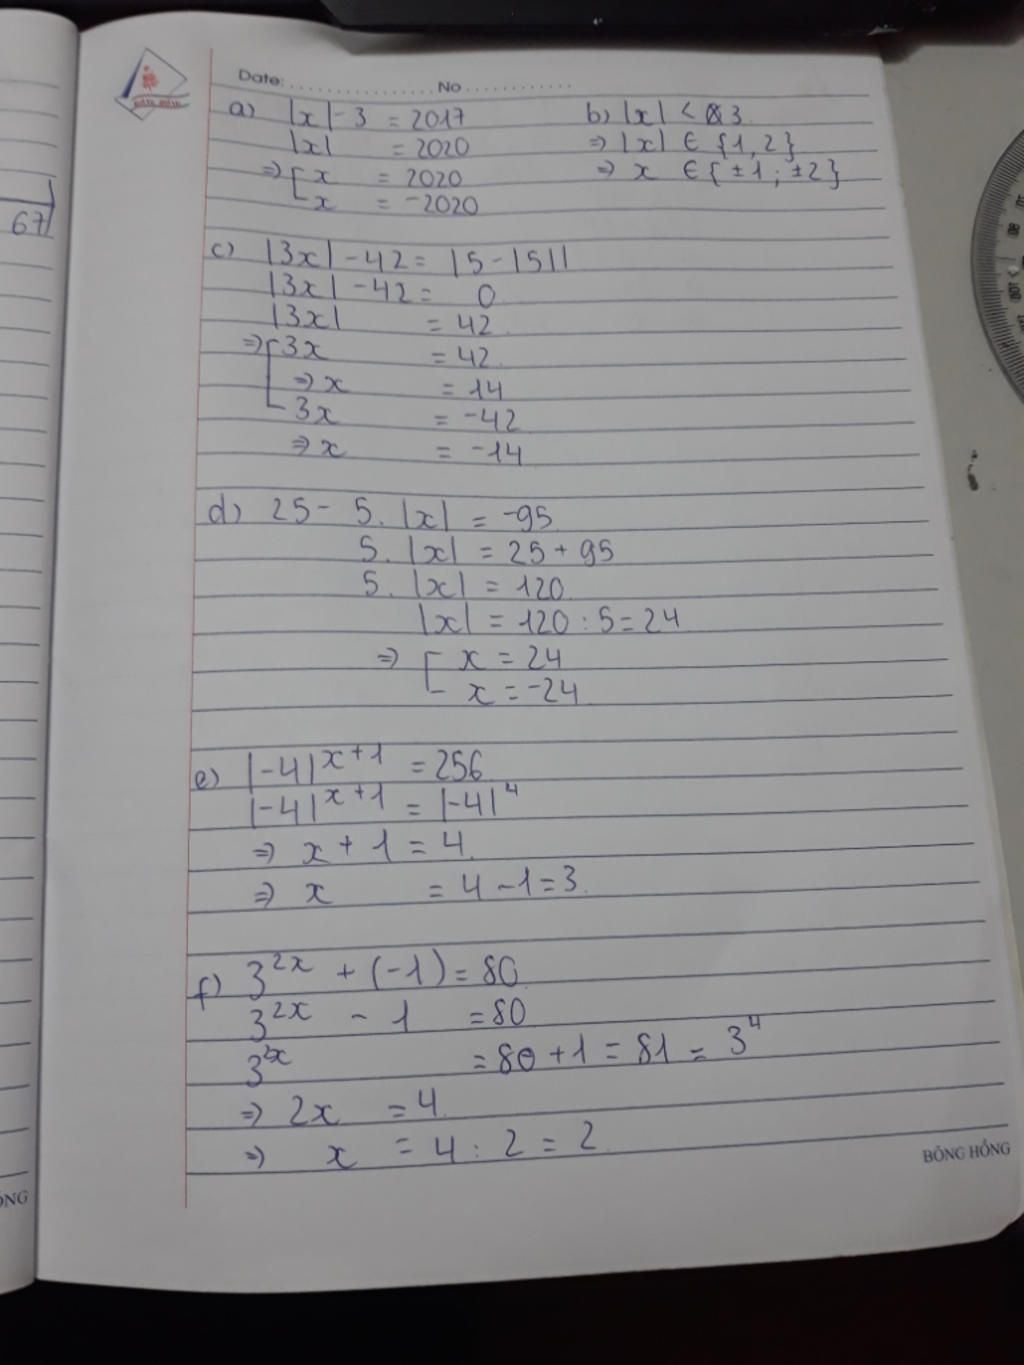 Date: ................ No ............
a) |x| - 3 = 2017
|x| = 2020
⇒ [ x = 2020
x = -2020
b) |x| < 3
⇒ |x| ∈ {1, 2}
⇒ x ∈ {±1; ±2}
c) |3x| - 42 = |5 - |5||
|3x| - 42 = 0
|3x| = 42
⇒ [ 3x = 42
⇒ x = 14
3x = -42
⇒ x = -14
d) 25 - 5. |x| = -95
5. |x| = 25 + 95
5. |x| = 120
|x| = 120 : 5 = 24
⇒ [ x = 24
x = -24
e) |-4|^{x+1} = 256
|-4|^{x+1} = |-4|^4
⇒ x + 1 = 4
⇒ x = 4 - 1 = 3
f) 3^{2x} + (-1) = 80
3^{2x} - 1 = 80
3^{2x} = 80 + 1 = 81 = 3^4
⇒ 2x = 4
⇒ x = 4 : 2 = 2
BÔNG HỒNG
67
ÔNG